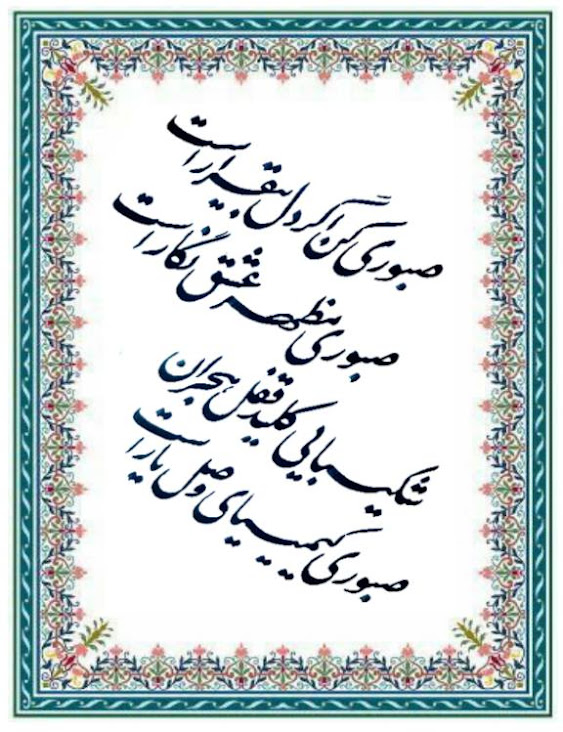 صبوری کن اگر دل بیقرار است
صبوری مظهر عشق نگار است
شکیبایی کلید قفل هجران
صبوری کیمیای وصل یار است